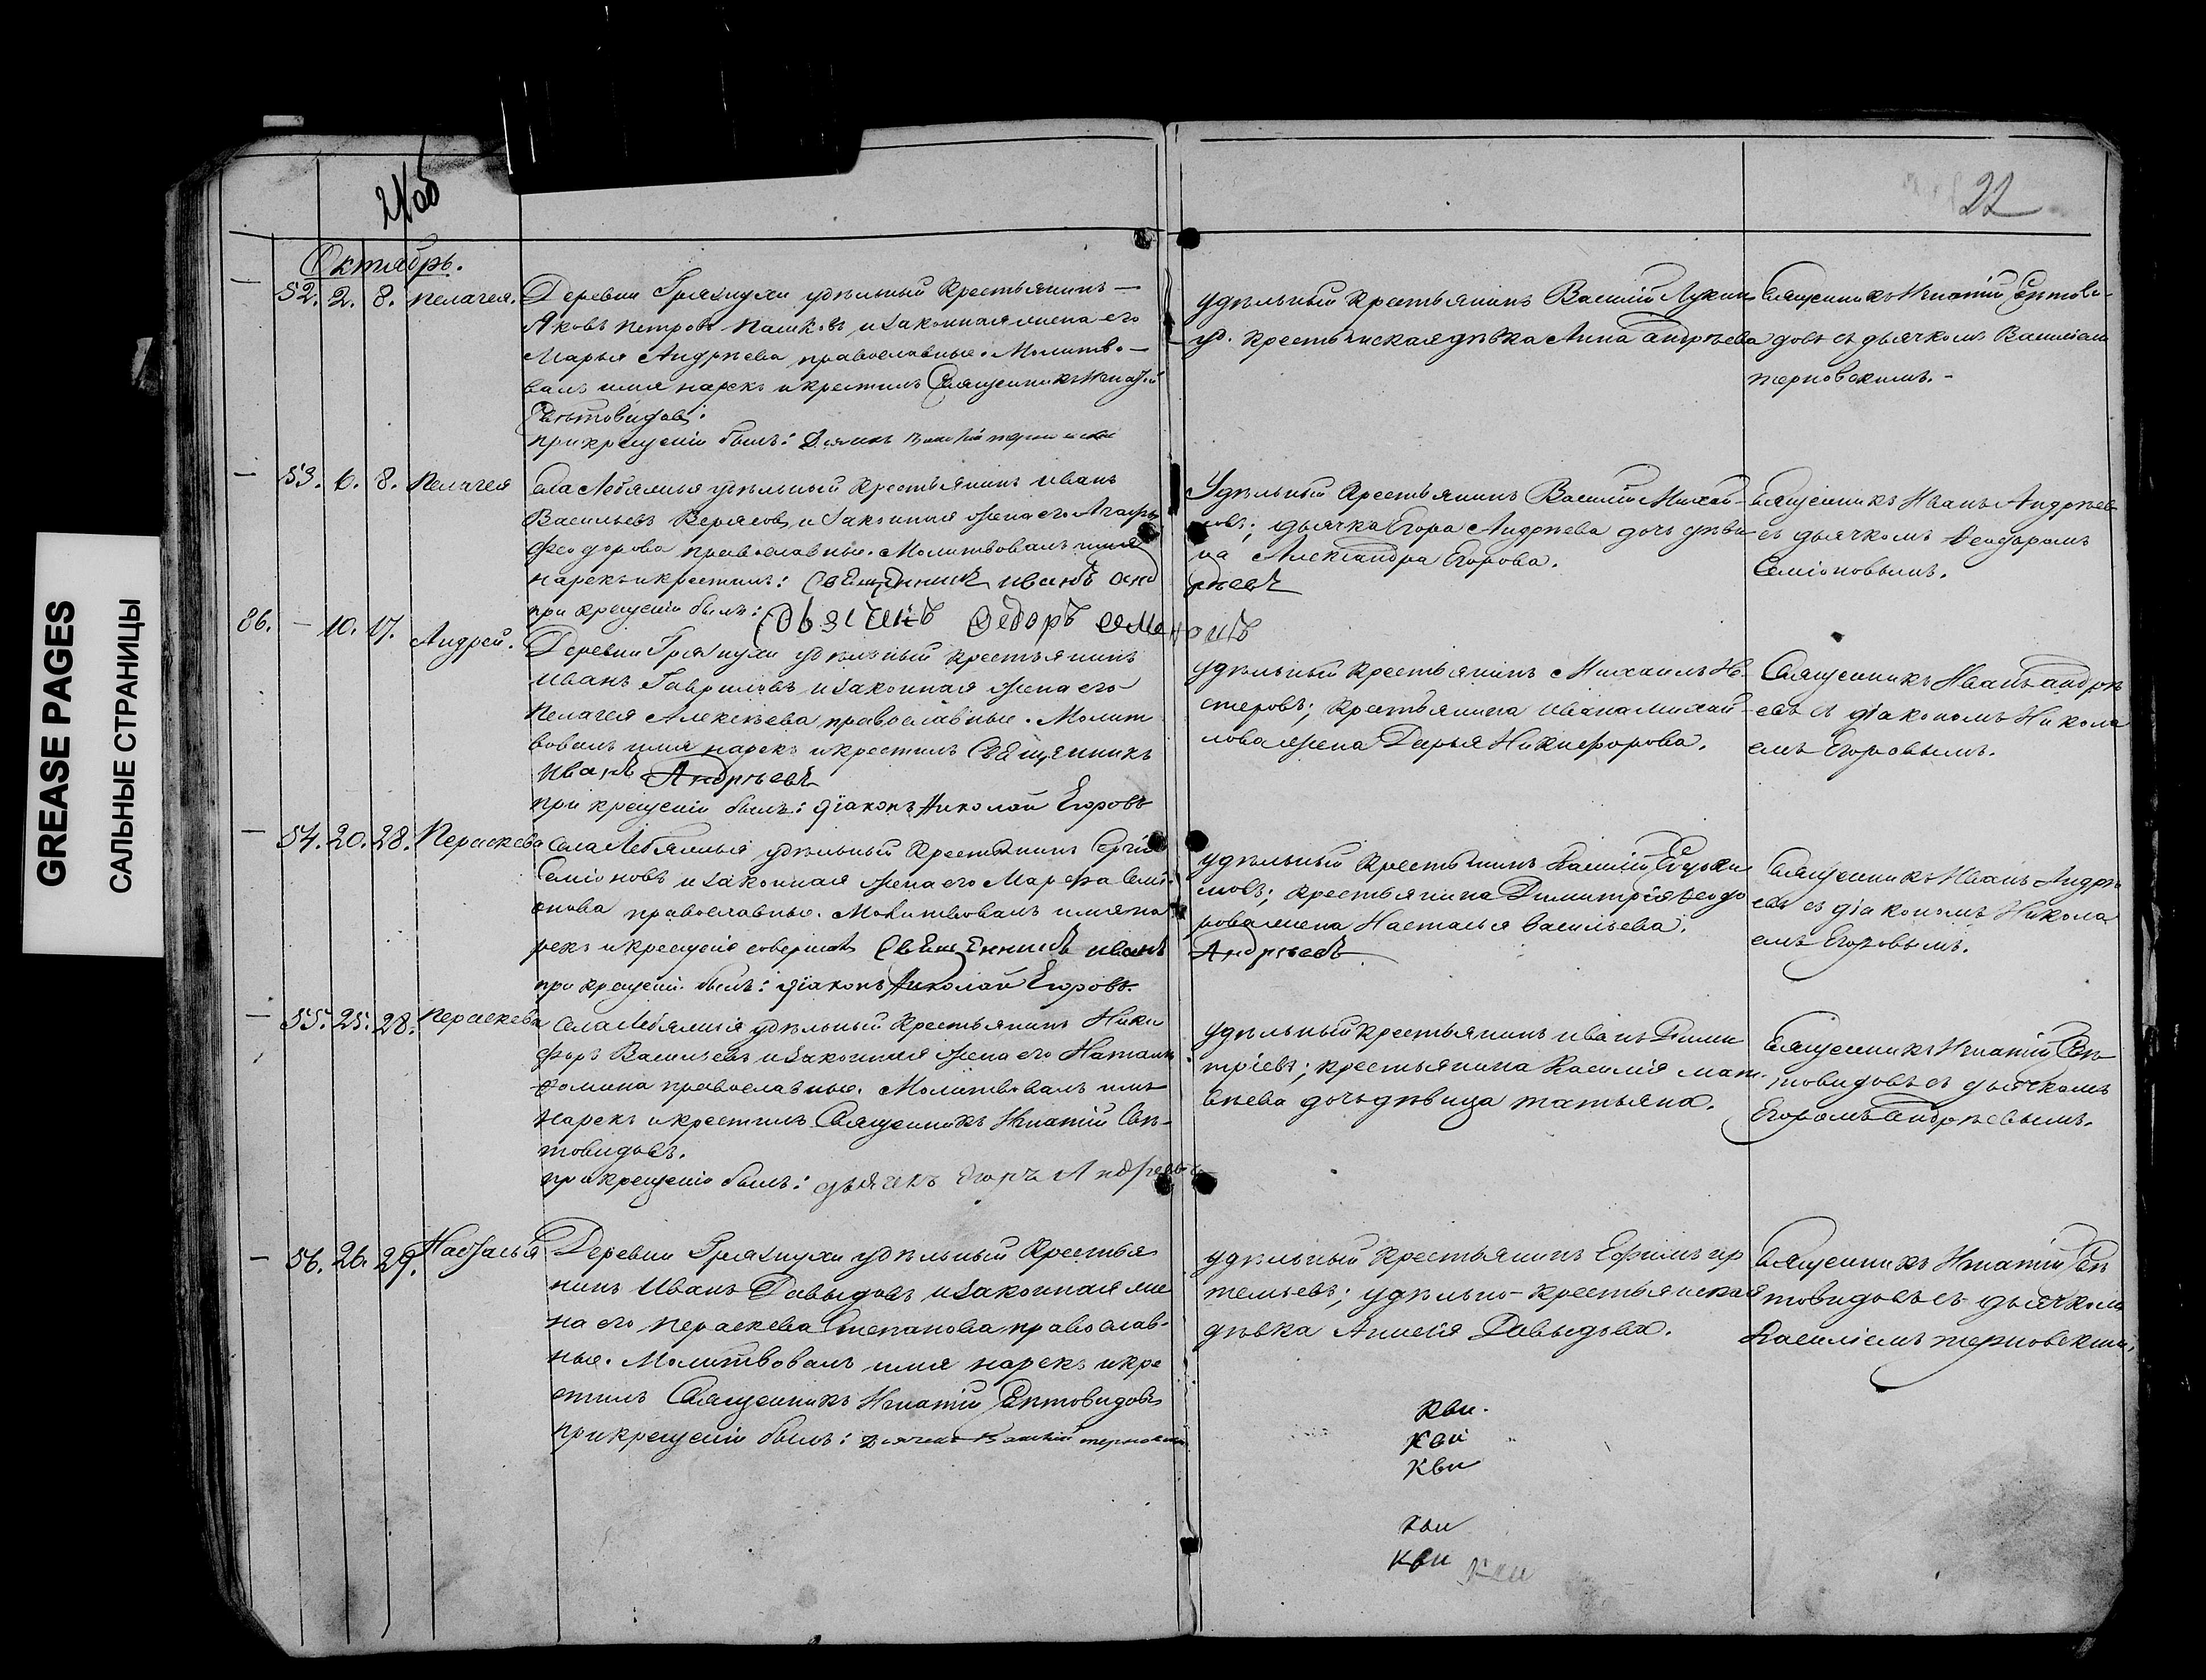 GREASE PAGES
САЛЬНЫЕ СТРАНИЦЫ
21об
22
Октябрь.
— 52. 2. 8. Пелагея.
Деревни Грязнухи удѣльный крестьянинъ —
Яковъ Петровъ Пашковъ, и законная жена его
Марья Андрѣева, православные. Молитво-
валъ имя нарекъ и крестилъ Священникъ Игнатій
Свѣтовидовъ.
при крещеніи былъ: Дьячекъ Василій Терновскій
удѣльный крестьянинъ Василій Лукинъ
уд. крестьянская дѣвка Анна Андрѣева
Священникъ Игнатій Свѣтови-
довъ съ дьячкомъ Василіемъ
Терновскимъ. -
— 53. 6. 8. Пелагея
Села Лебяжья удѣльный крестьянинъ Иванъ
Васильевъ и законная жена его Агафья
Феодорова православные. Молитвовалъ имя
нарекъ и крестилъ: Священникъ Иванъ Анд
рѣевъ
при крещеніи былъ: Дьячекъ Федоръ Семеновъ
Удѣльный крестьянинъ Василій Михай-
ловъ; дьячка Егора Андрѣева дочь дѣви-
ца Александра Егорова.
Священникъ Иванъ Андрѣев
съ дьячкомъ Феодоромъ
Семіоновымъ.
86. — 10. 17. Андрей.
Деревни Грязнухи удѣльный крестьянинъ
Иванъ Гавриловъ и законная жена его
Пелагея Алексѣева православные. Молит
вовалъ имя нарекъ и крестилъ Священникъ
Иванъ Андрѣевъ
при крещеніи былъ: діаконъ Николай Егоровъ
удѣльный крестьянинъ Михаилъ Не-
стеровъ; крестьянина Ивана Михай-
лова жена Дарья Никифорова.
Священникъ Иванъ Андрѣ
евъ съ діакономъ Никола
емъ Егоровымъ.
— 54. 20. 28. Пераскева
Села Лебяжья удѣльный крестьянинъ Сергій
Семіоновъ и законная жена его Марфа Семі-
онова православные. Молитвовалъ имя на
рекъ и крещеніе совершилъ Священникъ Иванъ
Андрѣевъ
при крещеніи былъ: діаконъ Николай Егоровъ.
удѣльный крестьянинъ Василій Евдоки
мовъ; крестьянина Димитрія Феодо
рова жена Настасья Васильева.
Священникъ Иванъ Андрѣ
евъ съ діакономъ Никола
емъ Егоровымъ.
— 55. 25. 28. Пераскева
Села Лебяжья удѣльный крестьянинъ Ники
форъ Васильевъ и законная жена его Наталья
Фомина православные. Молитвовалъ имя
нарекъ и крестилъ Священникъ Игнатій Свѣ-
товидовъ.
при крещеніи былъ: дьячекъ Егоръ Андреевъ
удѣльный крестьянинъ Иванъ Дими
тріевъ; крестьянина Василія Мат-
вѣева дочь дѣвица Татьяна.
Священникъ Игнатій Свѣ
товидовъ съ дьячкомъ
Егоромъ Андрѣевымъ.
— 56. 26. 29. Настасья
Деревни Грязнухи удѣльный крестья
нинъ Иванъ Давыдовъ и законная же
на его Пераскева Степанова православ-
ные. Молитвовалъ имя нарекъ и кре
стилъ Священникъ Игнатій Свѣтовидовъ
при крещеніи былъ: Дьячекъ Василій Терновскій
удѣльный крестьянинъ Ефимъ Ар
темьевъ; удѣльно-крестьянская
дѣвка Анисія Давыдова.
Священникъ Игнатій Свѣ
товидовъ съ дьячкомъ
Василіемъ Терновскимъ.